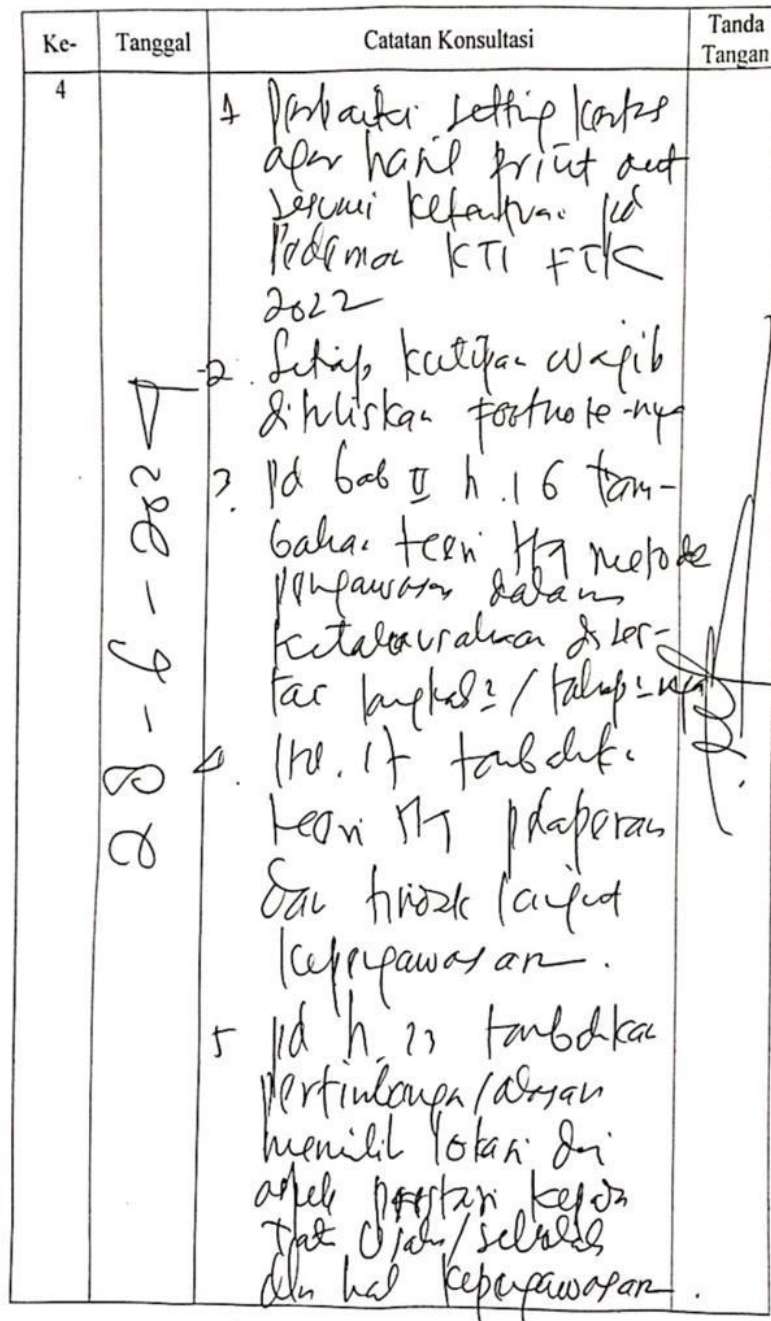 Ke-
Tanggal
Catatan Konsultasi
Tanda
Tangan
4
28 - 6 - 202
1 Perbaiki setting kertas
agar hasil print out
sesuai ketentuan pd
Pedoman KTI FTK
2022
2. Setiap kutipan wajib
dituliskan footnote-nya
3. Pd bab II h. 16 tam-
bahan teori ttg metode
pengawasan dalam
ketatausahaan diser-
tai langkah2/tahap2nya
4. Hl. 17 tambahk.
teori ttg pelaporan
dan tindak lanjut
kepengawasan.
5 pd h. 23 tambahkan
pertimbangan/alasan
memilih lokasi dr
aspek prestasi
/sekolah
dlm hal kepengawasan.